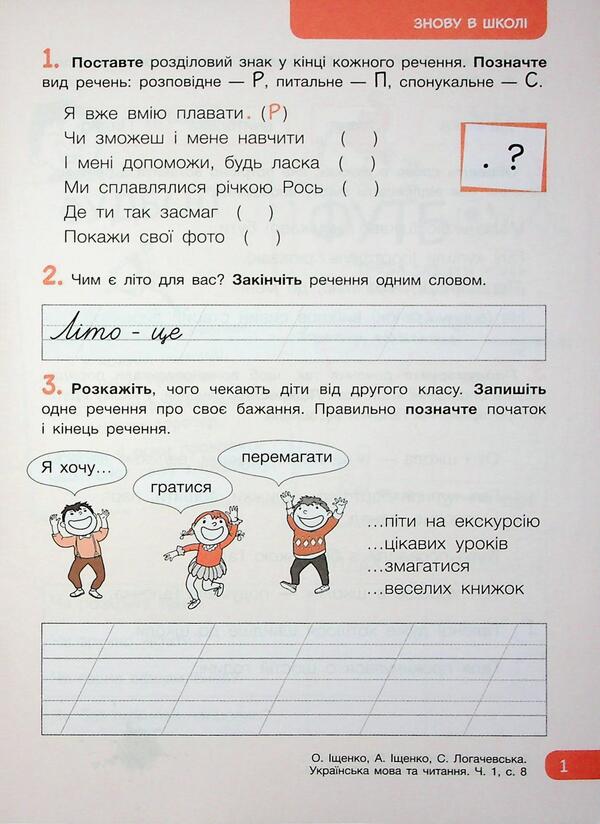 ЗНОВУ В ШКОЛІ
1. Поставте розділовий знак у кінці кожного речення. Позначте
вид речень: розповідне — Р, питальне — П, спонукальне — С.
Я вже вмію плавати. (Р)
Чи зможеш і мене навчити ( )
І мені допоможи, будь ласка ( )
Ми сплавлялися річкою Рось ( )
Де ти так засмаг ( )
Покажи свої фото ( )
. ?
2. Чим є літо для вас? Закінчіть речення одним словом.
Літо - це
3. Розкажіть, чого чекають діти від другого класу. Запишіть
одне речення про своє бажання. Правильно позначте початок
і кінець речення.
Я хочу...
гратися
перемагати
...піти на екскурсію
...цікавих уроків
...змагатися
...веселих книжок
О. Іщенко, А. Іщенко, С. Логачевська.
Українська мова та читання. Ч. 1, с. 8
1